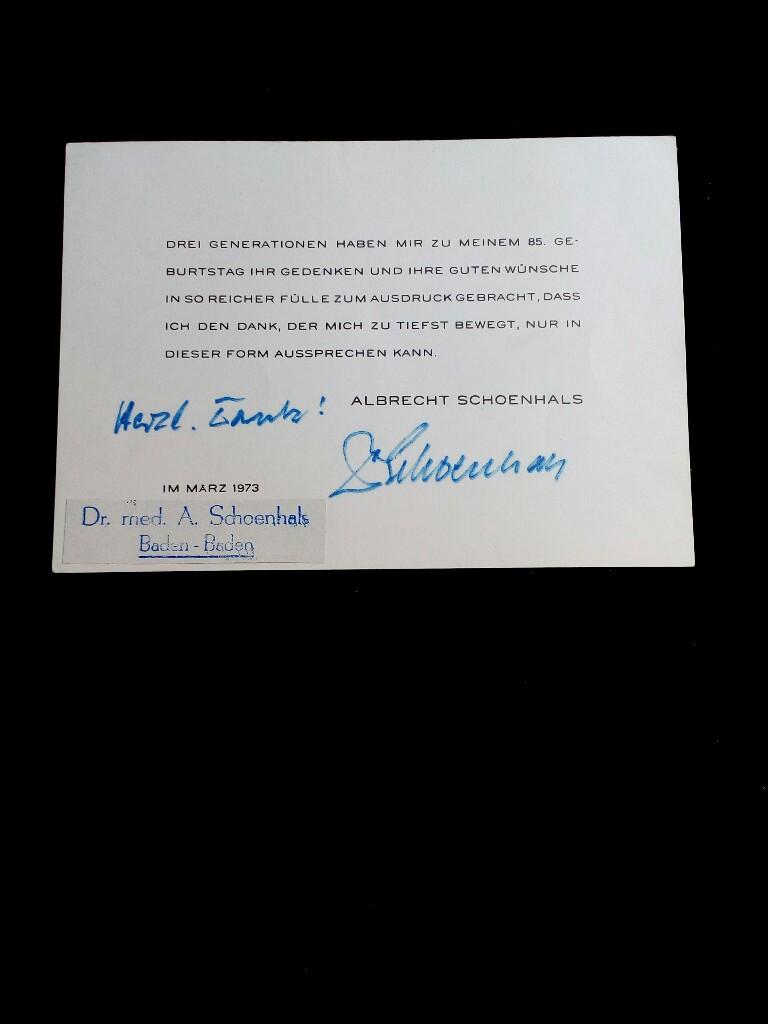 DREI GENERATIONEN HABEN MIR ZU MEINEM 85. GE-
BURTSTAG IHR GEDENKEN UND IHRE GUTEN WÜNSCHE
IN SO REICHER FÜLLE ZUM AUSDRUCK GEBRACHT, DASS
ICH DEN DANK, DER MICH ZU TIEFST BEWEGT, NUR IN
DIESER FORM AUSSPRECHEN KANN.
ALBRECHT SCHOENHALS
Herzl. Dank!
Dr Schoenhals
IM MÄRZ 1973
Dr. med. A. Schoenhals
Baden-Baden